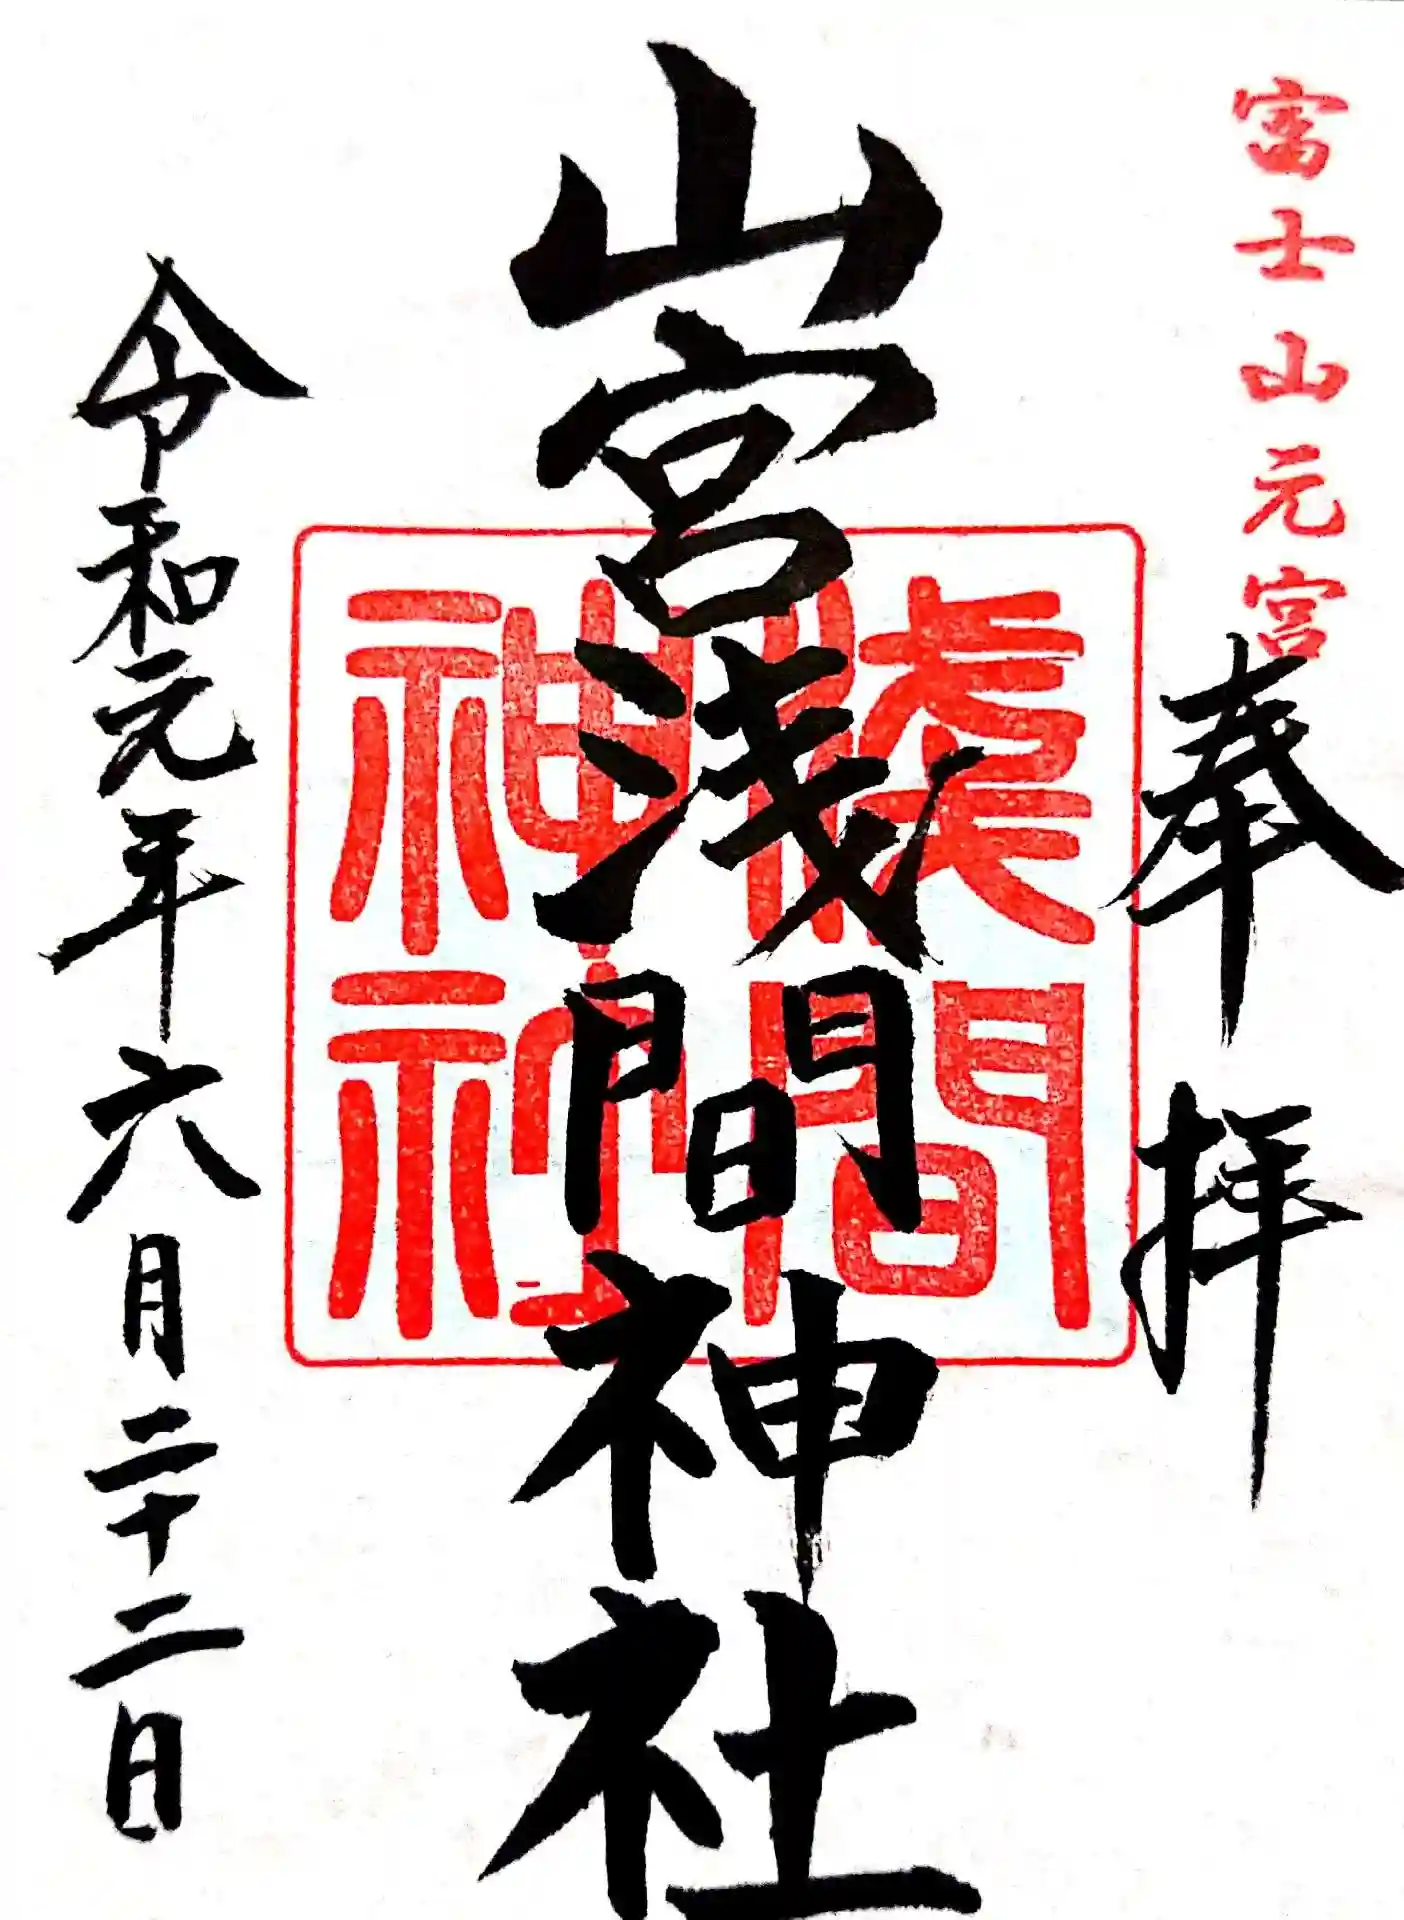 富士山元宮
奉拝
山宮浅間神社
浅間
神社
令和元年六月二十二日